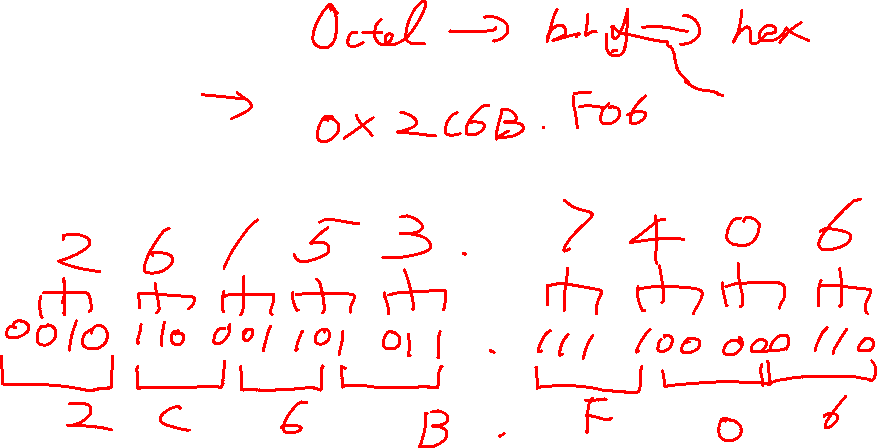 Octel → bin → hex
→ 0x2C6B.F06
2 6 1 5 3 . 7 4 0 6
0010 110 001 101 011 . 111 100 000 110
2 C 6 B . F 0 6